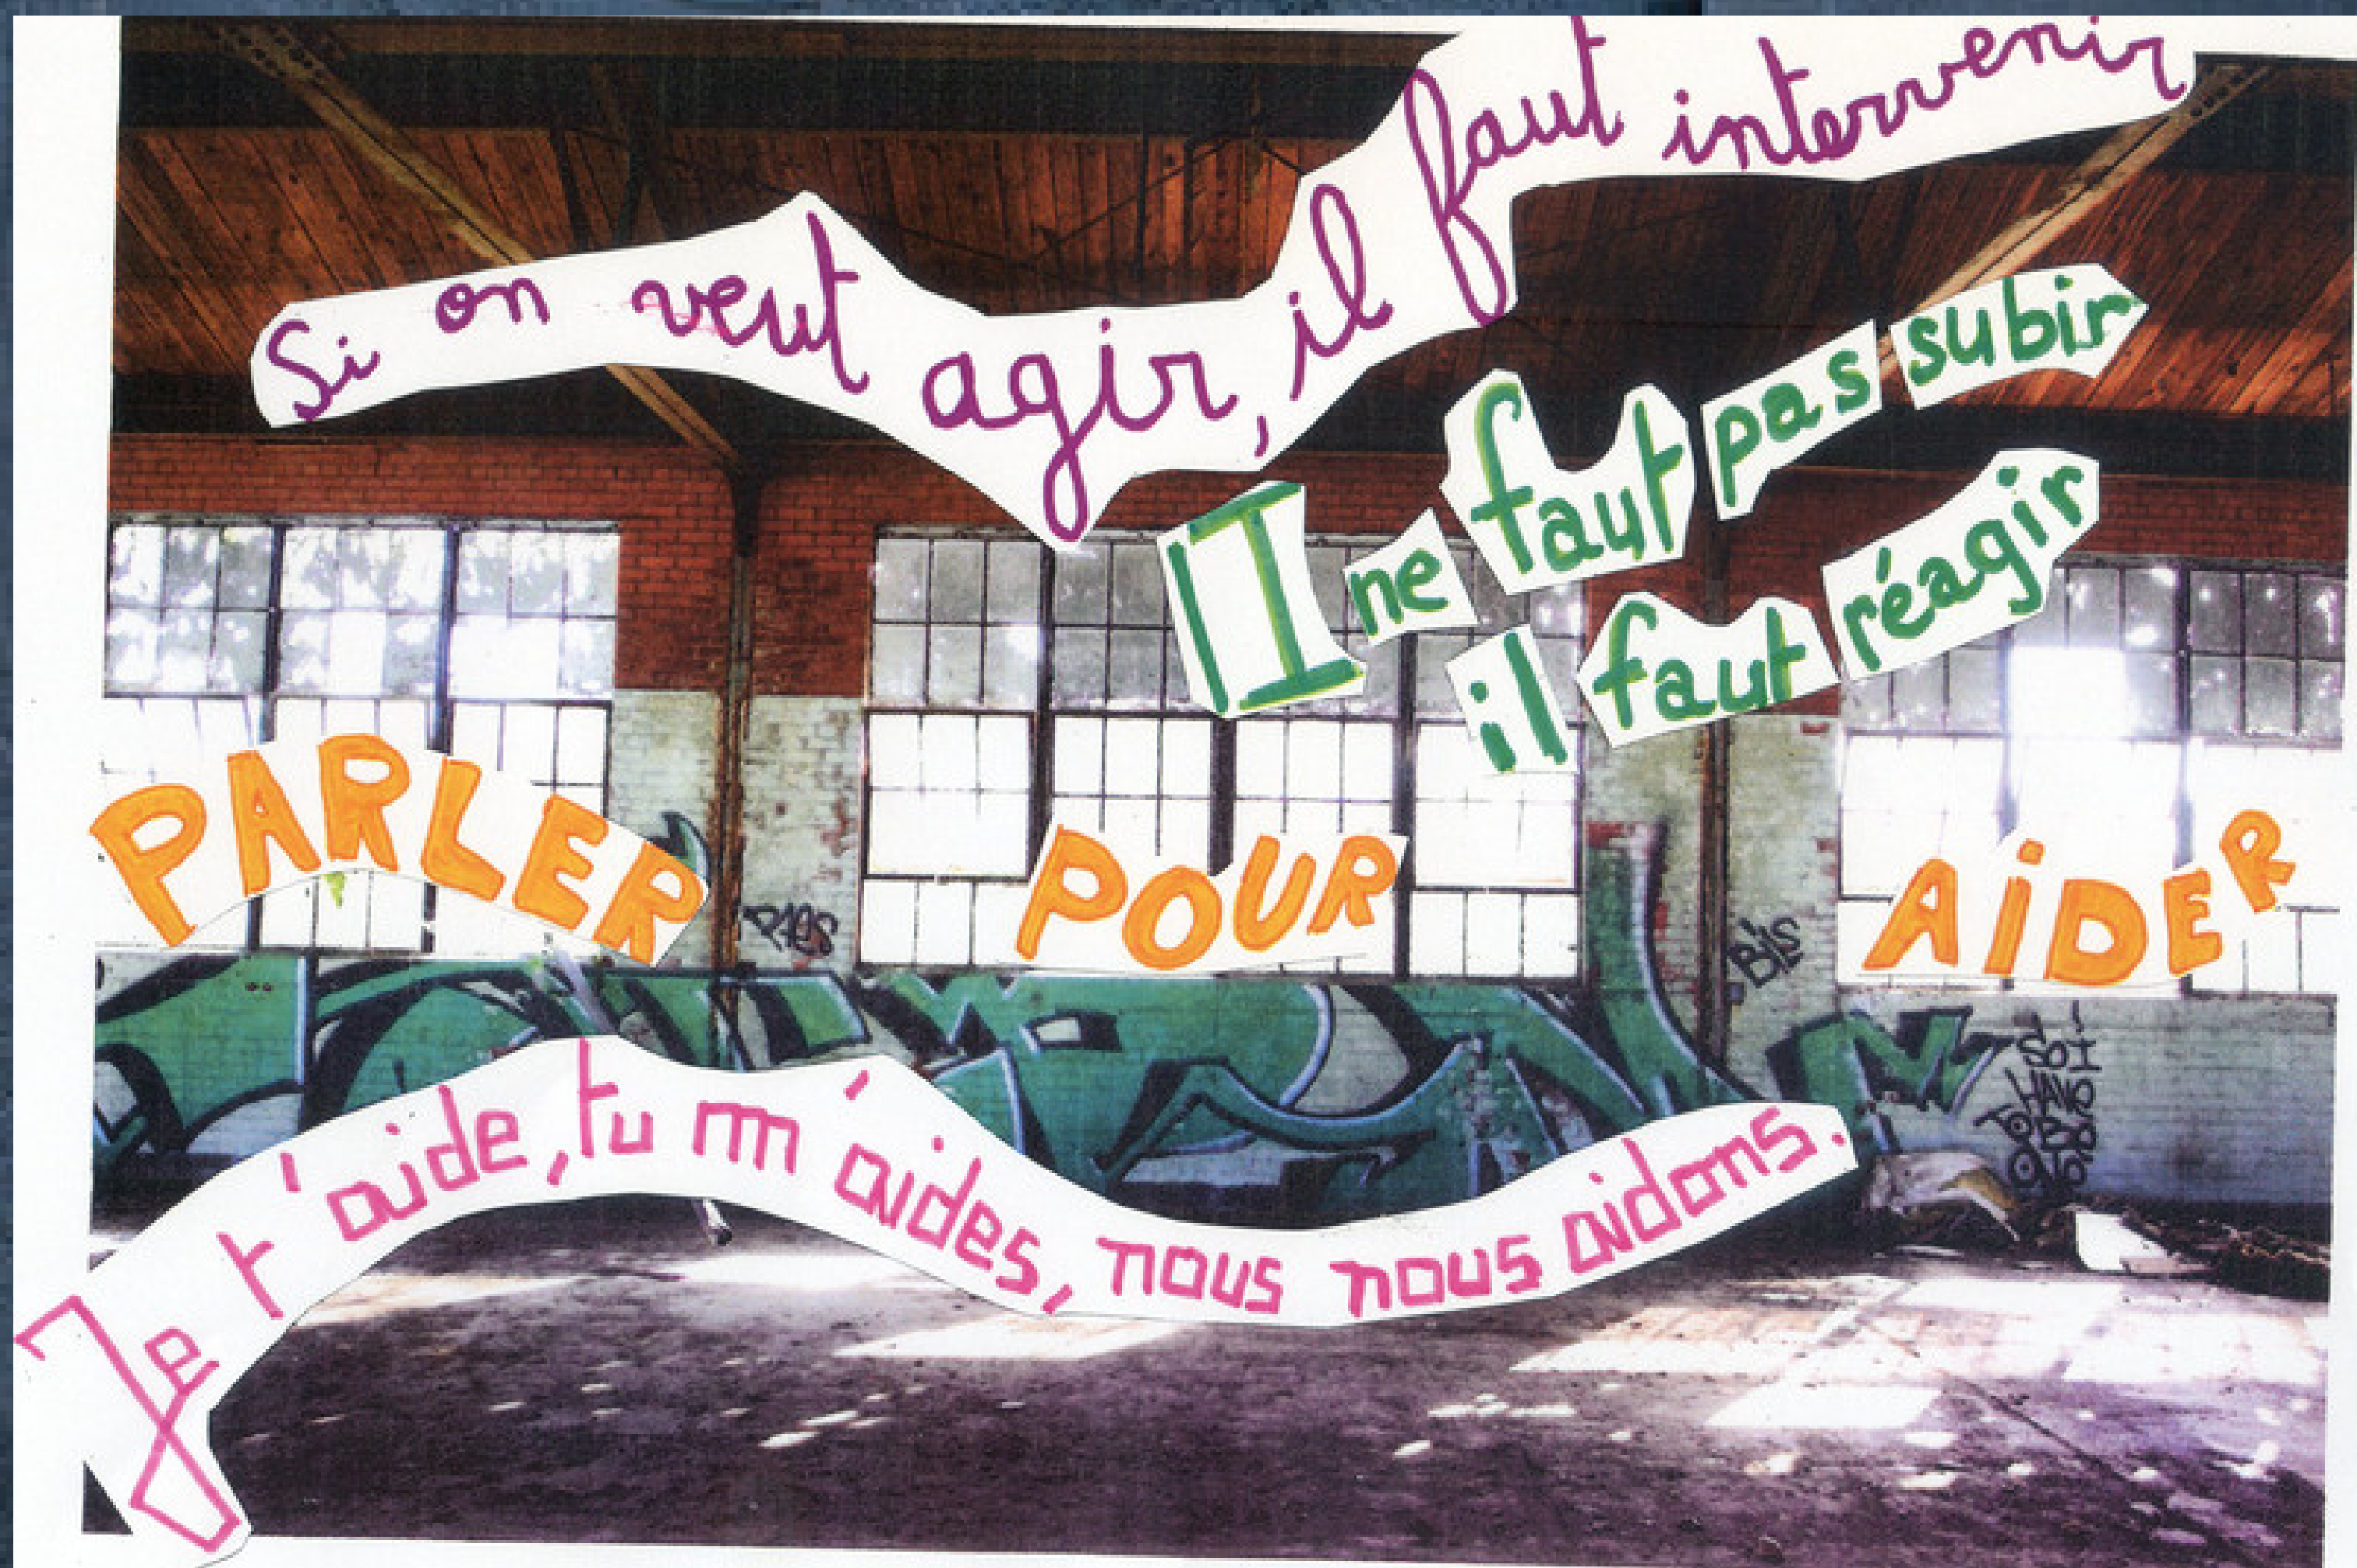 Si on veut agir, il faut intervenir
Il ne faut pas subir
il faut réagir
PARLER POUR AiDER
BiS
SO I
HAVE
TO
Je t'aide, tu m'aides, nous nous aidons.